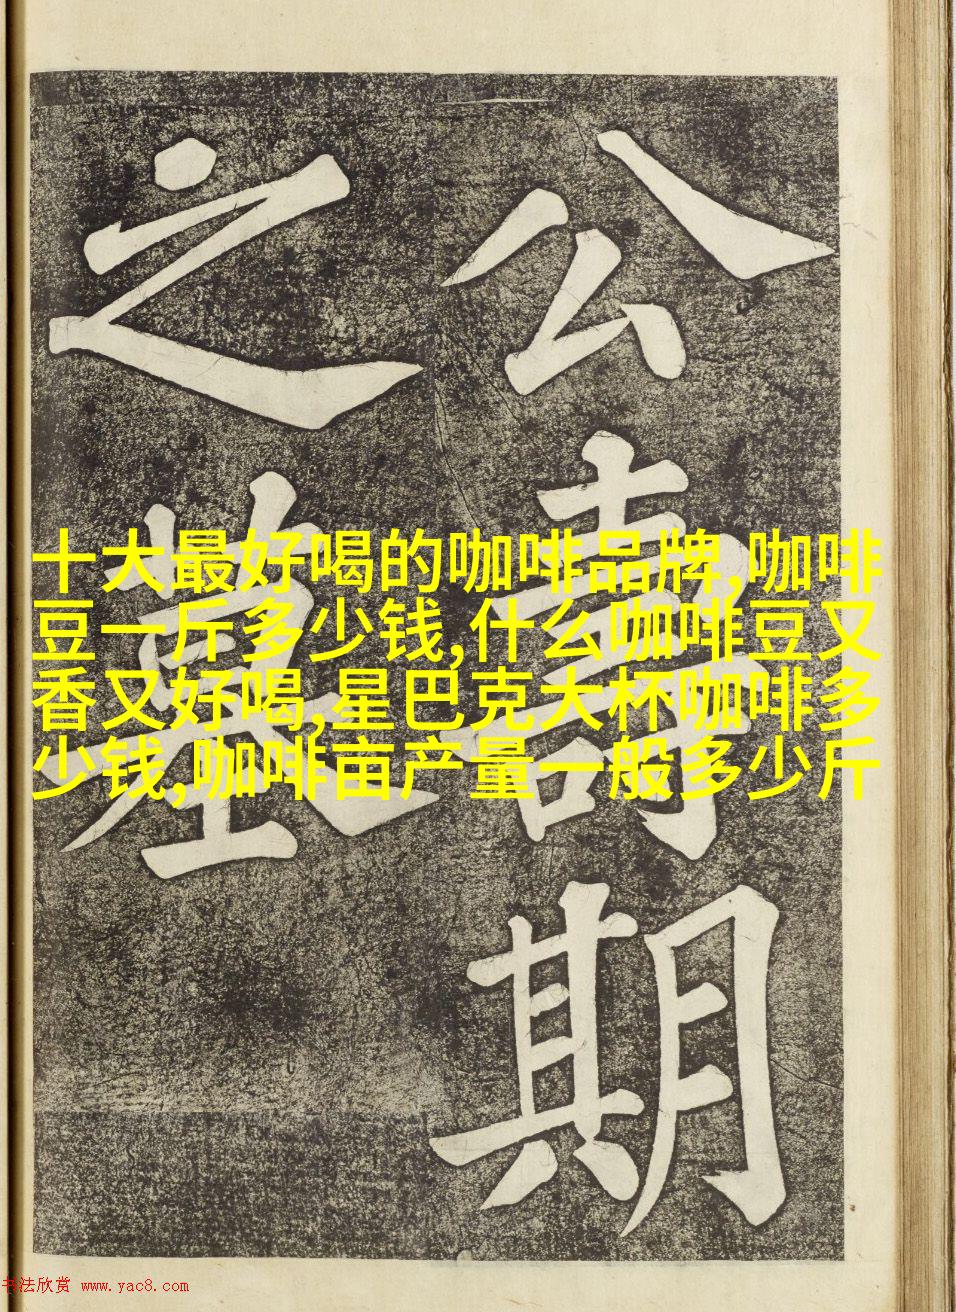 公壽期
之墓
十大最好喝的咖啡品牌,咖啡
豆一斤多少钱,什么咖啡豆又
香又好喝,星巴克大杯咖啡多
少钱,咖啡亩产量一般多少斤
书法欣赏 www.yac8.com